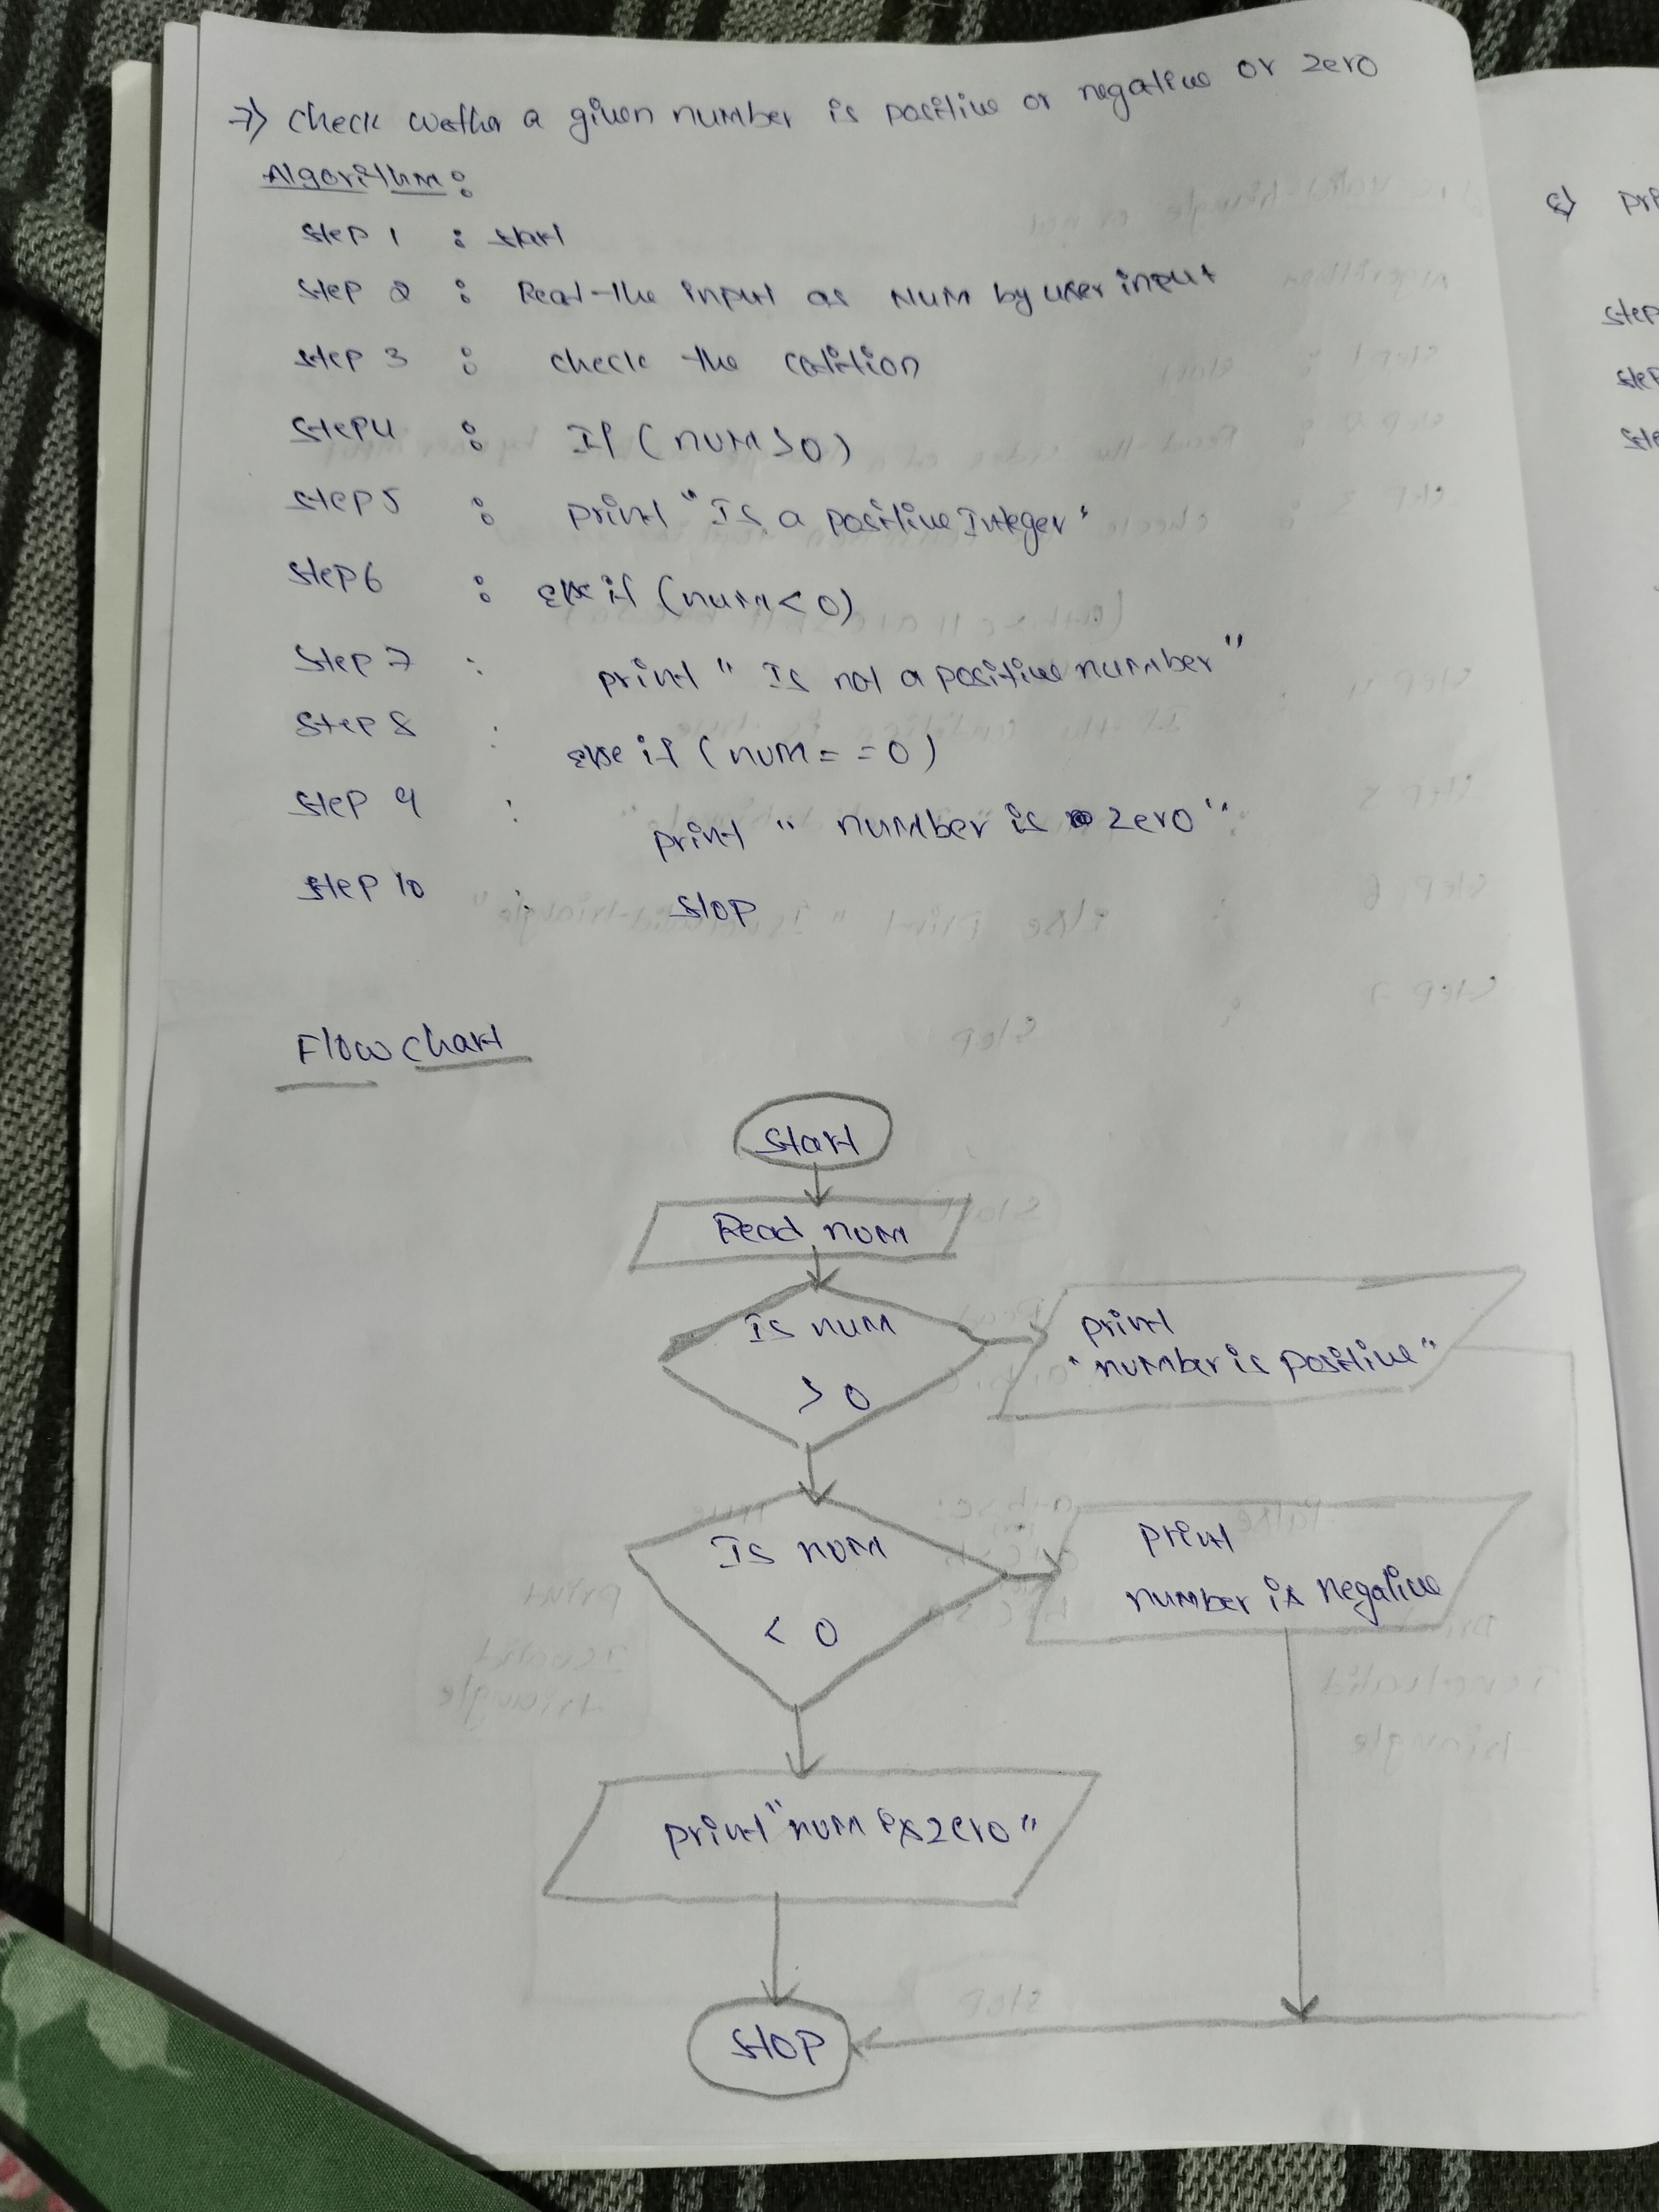 7) check wether a given number is positive or negative or zero
Algorithm :
Step 1 : start
Step 2 : Read the input as NUM by user input
Step 3 : check the codition
Step 4 : If (num>0)
Step 5 : print "Is a positive Integer"
Step 6 : else if (num<0)
Step 7 : print "Is not a positive number"
Step 8 : else if (num==0)
Step 9 : print "number is zero"
Step 10 : stop
Flow chart
start
Read num
Is num
> 0
print
"number is positive"
Is num
< 0
print
number is negative
print "num is zero"
stop
8) pri
step
step
ste